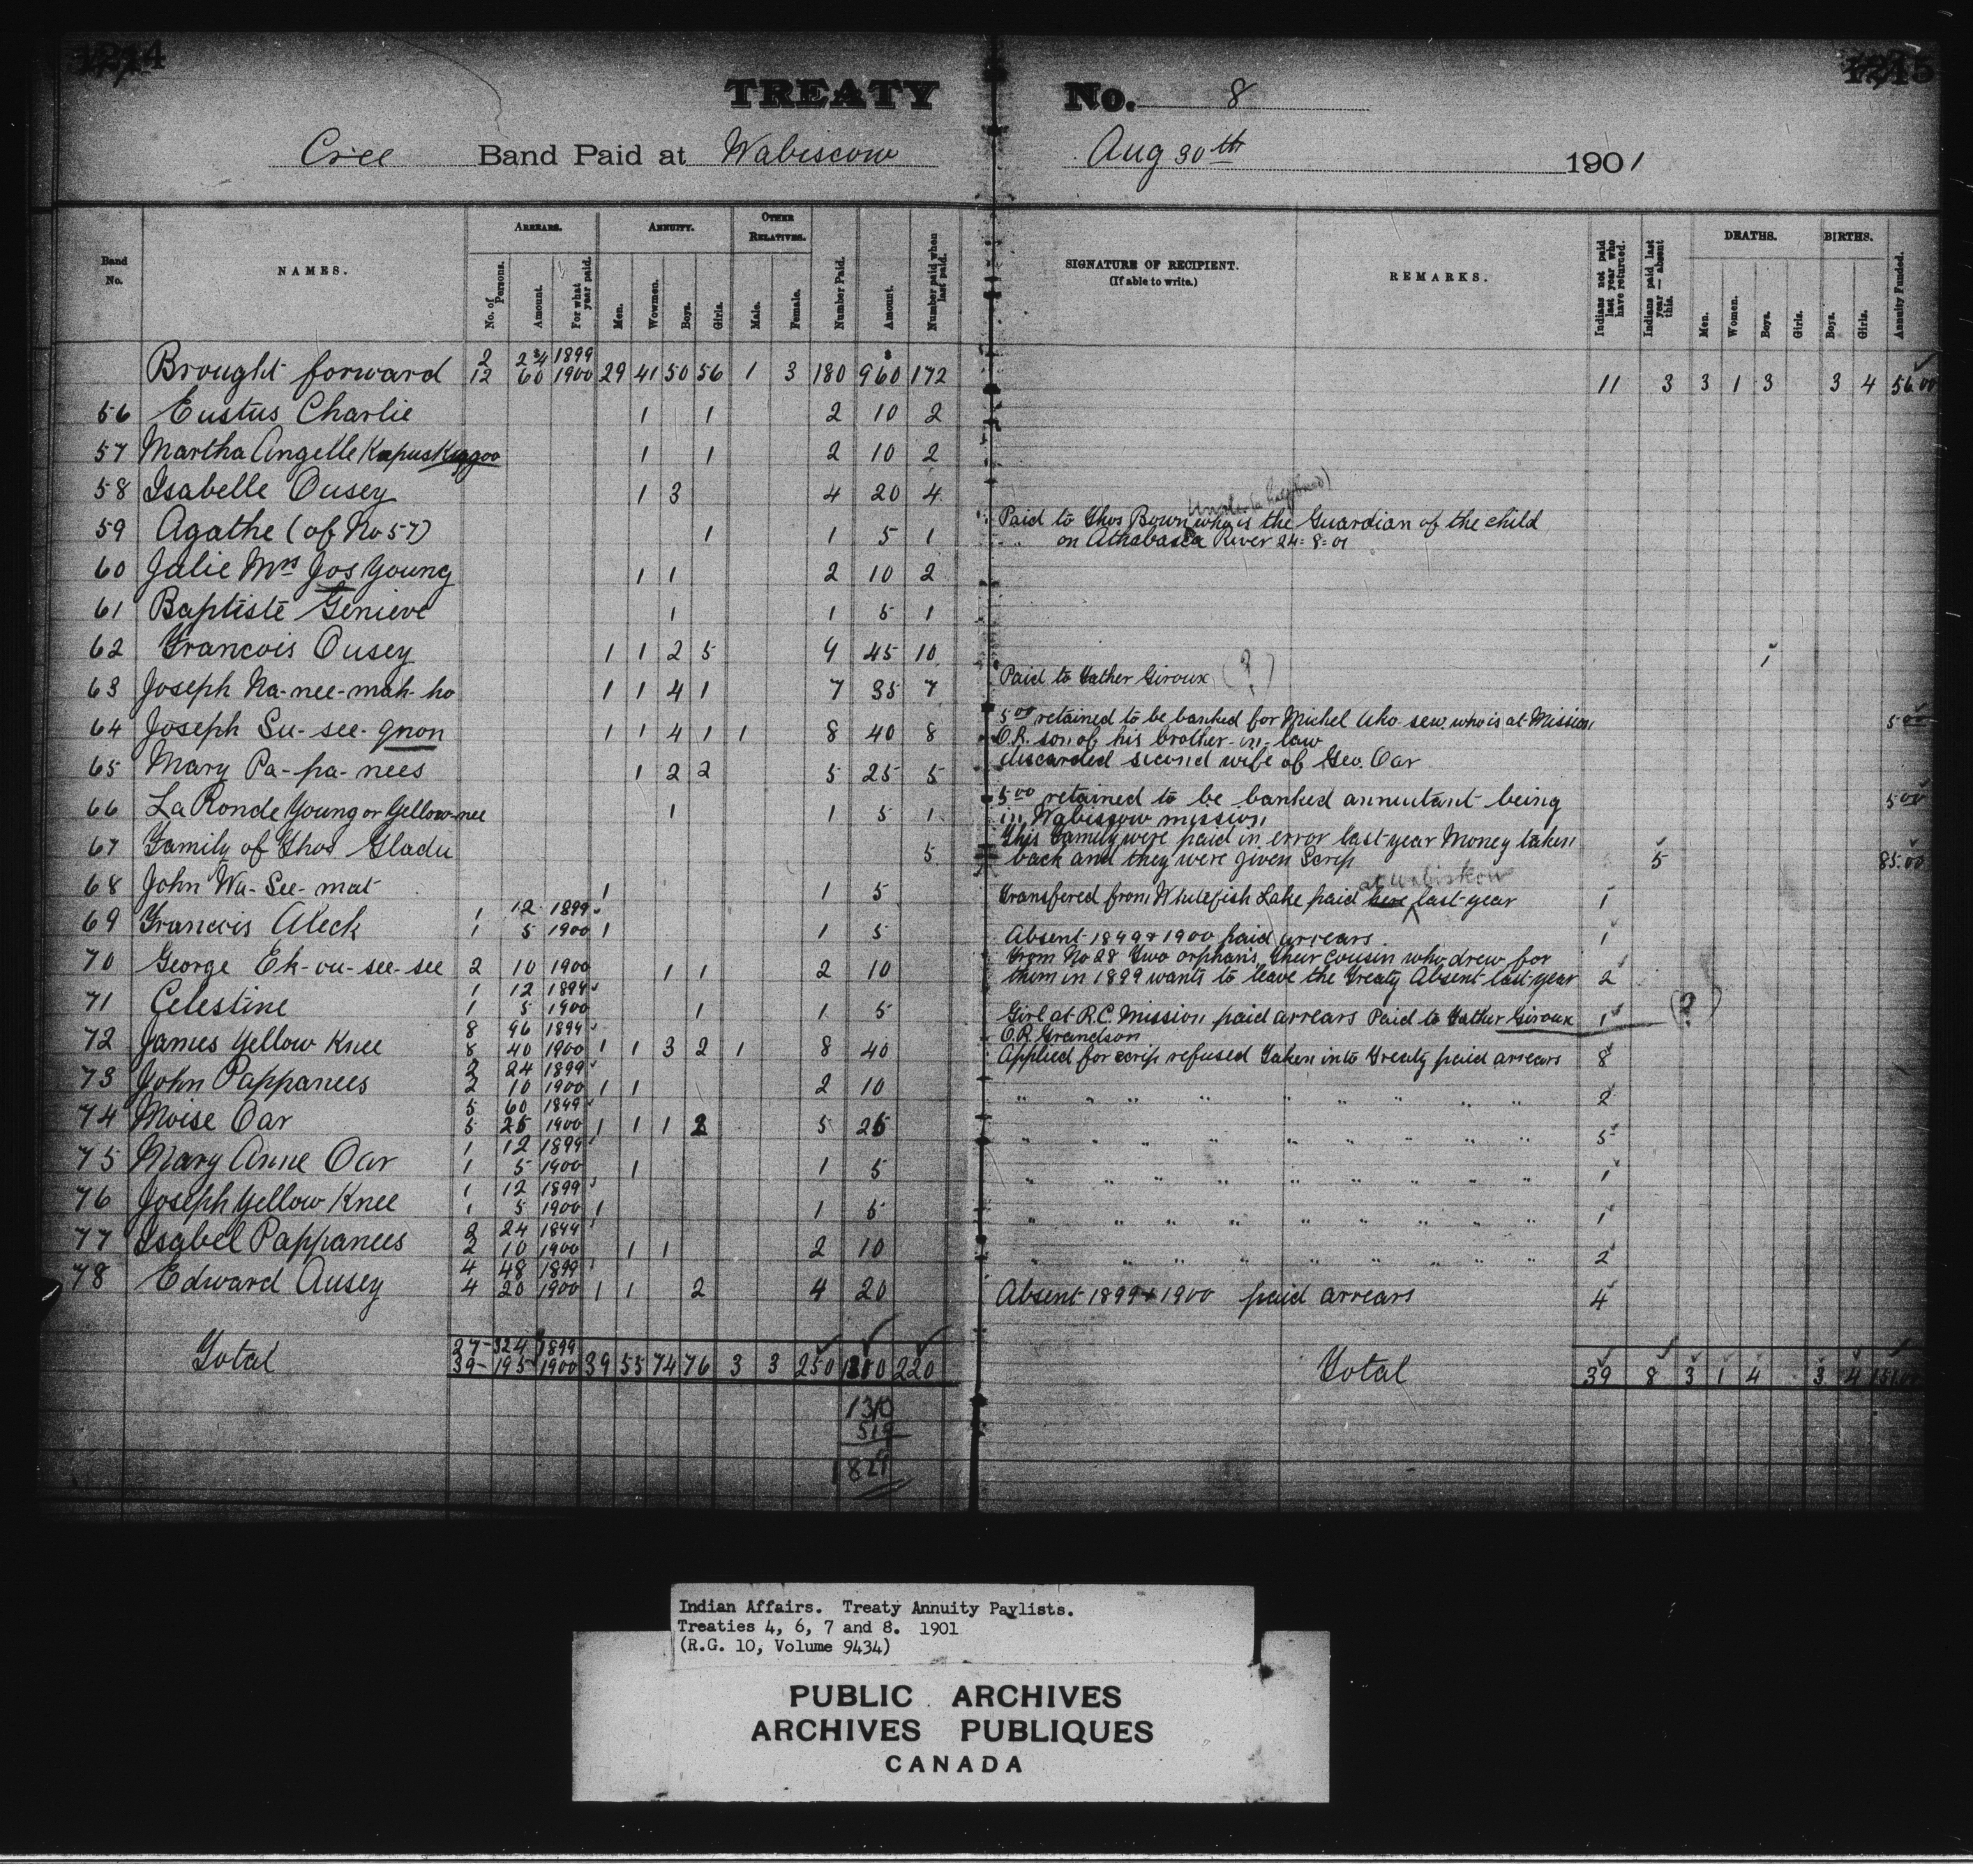 1214
1215
TREATY No. 8
Cree Band Paid at Wabiscow Aug 30th 1901
Band No.
NAMES.
ARREARS.
No. of Persons.
Amount.
For what year paid.
ANNUITY.
Men.
Wowmen.
Boys.
Girls.
OTHER RELATIVES.
Male.
Female.
Number Paid.
Amount.
Number paid when last paid.
SIGNATURE OF RECIPIENT.
(If able to write.)
REMARKS.
Indians not paid last year who have returned.
Indians paid last year — absent this.
DEATHS.
Men.
Women.
Boys.
Girls.
BIRTHS.
Boys.
Girls.
Annuity Funded.
2 24 1899
Brought forward 12 60 1900 29 41 50 56 1 3 180 960 172 11 3 3 1 3 3 4 56.00
56 Eustus Charlie 1 1 2 10 2
57 Martha Angelle Kapuskaggoo 1 1 2 10 2
58 Isabelle Ousey 1 3 4 20 4
59 Agathe (of No 57) 1 1 5 1 Paid to Thos Bown who is the Guardian of the child
on Athabasca River 24-8-01
60 Julie Mrs Jos Young 1 1 2 10 2
61 Baptiste Genieve 1 1 5 1
62 Francois Ousey 1 1 2 5 9 45 10 1
63 Joseph Na-nee-mah-ho 1 1 4 1 7 35 7 Paid to Father Giroux (?)
64 Joseph Su-see-gnon 1 1 4 1 1 8 40 8 5.00 retained to be banked for Michel Ako-sew who is at Mission 5.00
O.R. son of his brother-in-law
65 Mary Pa-pa-nees 1 2 2 5 25 5 discarded second wife of Geo. Oar
66 La Ronde Young or Yellow-nee 1 1 5 1 5.00 retained to be banked annuitant being 5.00
in Wabiscow mission
67 Family of Thos Gladu 5 This Family were paid in error last year Money taken 5 85.00
back and they were given Scrip
68 John Wa-See-mat 1 1 5 Transfered from Whitefish Lake paid here at Wabiskow last year 1
1 12 1899
69 Francois Aleck 1 5 1900 1 1 5 Absent 1899 & 1900 paid arrears. 1
70 George Ek-ou-see-see 2 10 1900 1 1 2 10 From No 28 Two orphans, their cousin who drew for
them in 1899 wants to leave the Treaty Absent last year 2
1 12 1899
71 Celestine 1 5 1900 1 1 5 Girl at R.C. Mission paid arrears Paid to Father Giroux 1 (?)
8 96 1899 O.R. Grandson
72 James Yellow Knee 8 40 1900 1 1 3 2 1 8 40 Applied for scrip refused Taken into Treaty paid arrears 8
2 24 1899
73 John Pappanees 2 10 1900 1 1 2 10 " " " " " " " " " 2
5 60 1899
74 Moise Oar 5 25 1900 1 1 1 2 5 25 " " " " " " " " " 5
1 12 1899
75 Mary Anne Oar 1 5 1900 1 1 5 " " " " " " " " " 1
1 12 1899
76 Joseph Yellow Knee 1 5 1900 1 1 5 " " " " " " " " " 1
2 24 1899
77 Isabel Pappanees 2 10 1900 1 1 2 10 " " " " " " " " " 2
4 48 1899
78 Edward Ausey 4 20 1900 1 1 2 4 20 Absent 1899 & 1900 paid arrears 4
27 - 324 1899
Total 39 - 195 1900 39 55 74 76 3 3 250 1310 220 Total 39 8 3 1 4 3 4 151.00
1310
519
1829
Indian Affairs. Treaty Annuity Paylists.
Treaties 4, 6, 7 and 8. 1901
(R.G. 10, Volume 9434)
PUBLIC ARCHIVES
ARCHIVES PUBLIQUES
CANADA